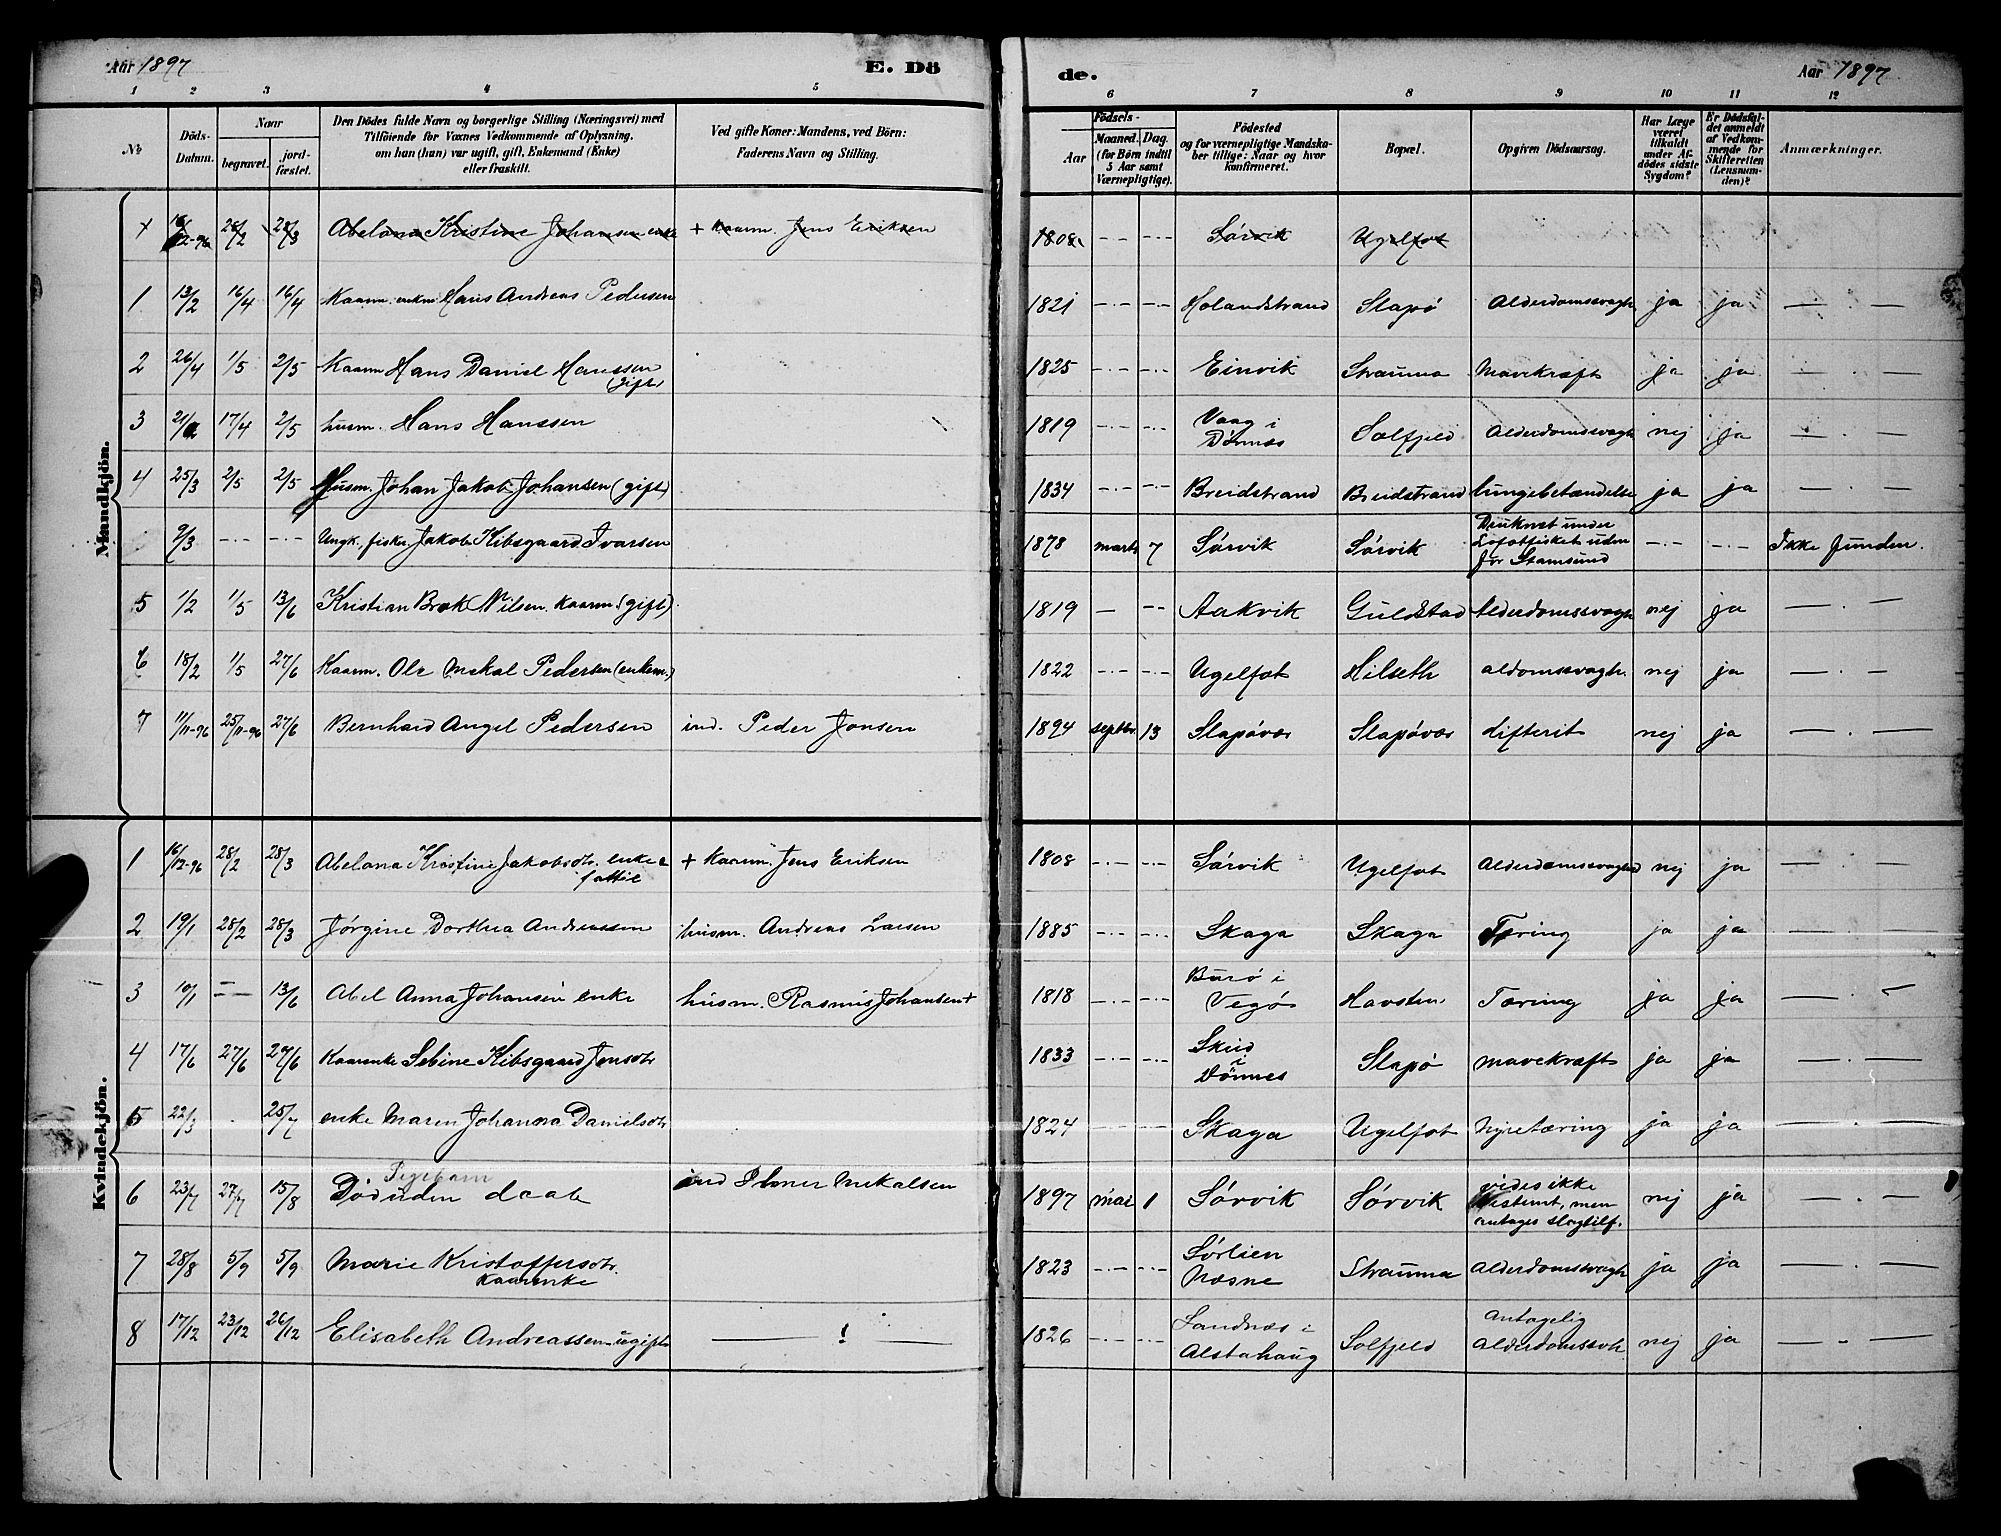 Aar 1897 E. Dö
de. Aar 1897.
1 2 3 4 5
6 7 8 9 10 11 12
№
Döds-
Datum.
Naar
begravet.
jord-
fæstet.
Den Dödes fulde Navn og borgerlige Stilling (Næringsvei) med
Tilföiende for Voxnes Vedkommende af Oplysning,
om han (hun) var ugift, gift, Enkemand (Enke)
eller fraskilt.
Ved gifte Koner: Mandens, ved Börn:
Faderens Navn og Stilling.
Födsels-
Aar
Maaned. Dag.
(for Börn indtil
5 Aar samt
Værnepligtige).
Födested
og for værnepligtige Mandska-
ber tillige: Naar og hvor
konfirmeret.
Bopæl.
Opgiven Dödsaarsag.
Har Læge
været
tilkaldt
under Af-
dödes sidste
Sygdom?
Er Dödsfal-
det anmeldt
af Vedkom-
mende for
Skifteretten
(Lensman-
den)?
Anmærkninger.
Mandkjön.
16/12-96 28/2 28/3 Abelona Kristine Johansen enke + kaarm. Jens Eriksen 1808 Sørvik Ugelfot
1 13/2 16/4 16/4 Kaarm. enkm Hans Andreas Pedersen 1821 Holandstrand Slapø Alderdomssvagh ja ja
2 26/4 1/5 2/5 Kaarm Hans Daniel Hanssen 1825 Einvik Strauma Mavekræft ja ja
(gift)
3 17/4 2/5 husm. Hans Hanssen 1819 Vaag i Solfjeld Alderdomssvagh nej ja
Dønnæs
4 25/3 2/5 2/5 Husm. Johan Jakob Johansen (gift) 1834 Breidstrand Breidstrand lungebetændelse ja ja
9/3 Ungk. fisker Jakob Kibsgaard Ivarsen 1878 marts 7 Sørvik Sørvik Druknet under Ikke funden.
Lofotfisket uden
for Stamsund
5 1/2 1/5 13/6 Kristian Brok Nilsen kaarm (gift) 1819 Aakvik Guldstad Alderdomssvagh nej ja
6 18/2 1/5 27/6 Kaarm. Ole Mekal Pedersen (enkem.) 1822 Ugelfot Hilseth aldomssvagh. nej ja
7 11/11-96 25/11-96 27/6 Bernhard Angel Pedersen ind. Peder Jonsen 1894 septbr 13 Slapøvær Slapøvær difterit nej ja
Kvindekjön.
1 16/12-96 28/2 28/3 Abelona Kristine Jakobsdtr. enke + Kaarm. Jens Eriksen 1808 Sørvik Ugelfot Alderdomssvaghed nej ja
2 19/1 28/2 28/3 Jørgine Dorthea Andreassen husm. Andreas Larsen 1885 Skaga Skaga Tæring ja ja
3 10/1 13/6 Abel Anna Johansen enke husm. Rasmus Johansen + 1818 Burø i Havsten Tæring ja ja
Vegø
4 17/6 27/6 27/6 Kaarenke Sebine Kibsgaard Jonsdtr 1833 Skeid Slapø mavekræft ja ja
i
Dønnes
5 22/3 25/7 enke Maren Johanna Danielsdtr 1824 Skaga Ugelfot Nyretæring ja ja
6 23/7 27/7 15/8 Pigebarn Mekalsen 1897 mai 1 Sørvik Sørvik vides ikke nej ja
Død uden daab bestemt, men
antages slagtilf.
7 28/8 5/9 5/9 Marie Kristoffersdtr. 1823 Sørlien Strauma Alderdomssvagh ja ja
kaarenke Næsne
8 17/12 23/12 26/12 Elisabeth Andreassen ugift 1826 Sandnæs i Solfjeld Antagelig nej ja
Alstahaug Alderdomssvh